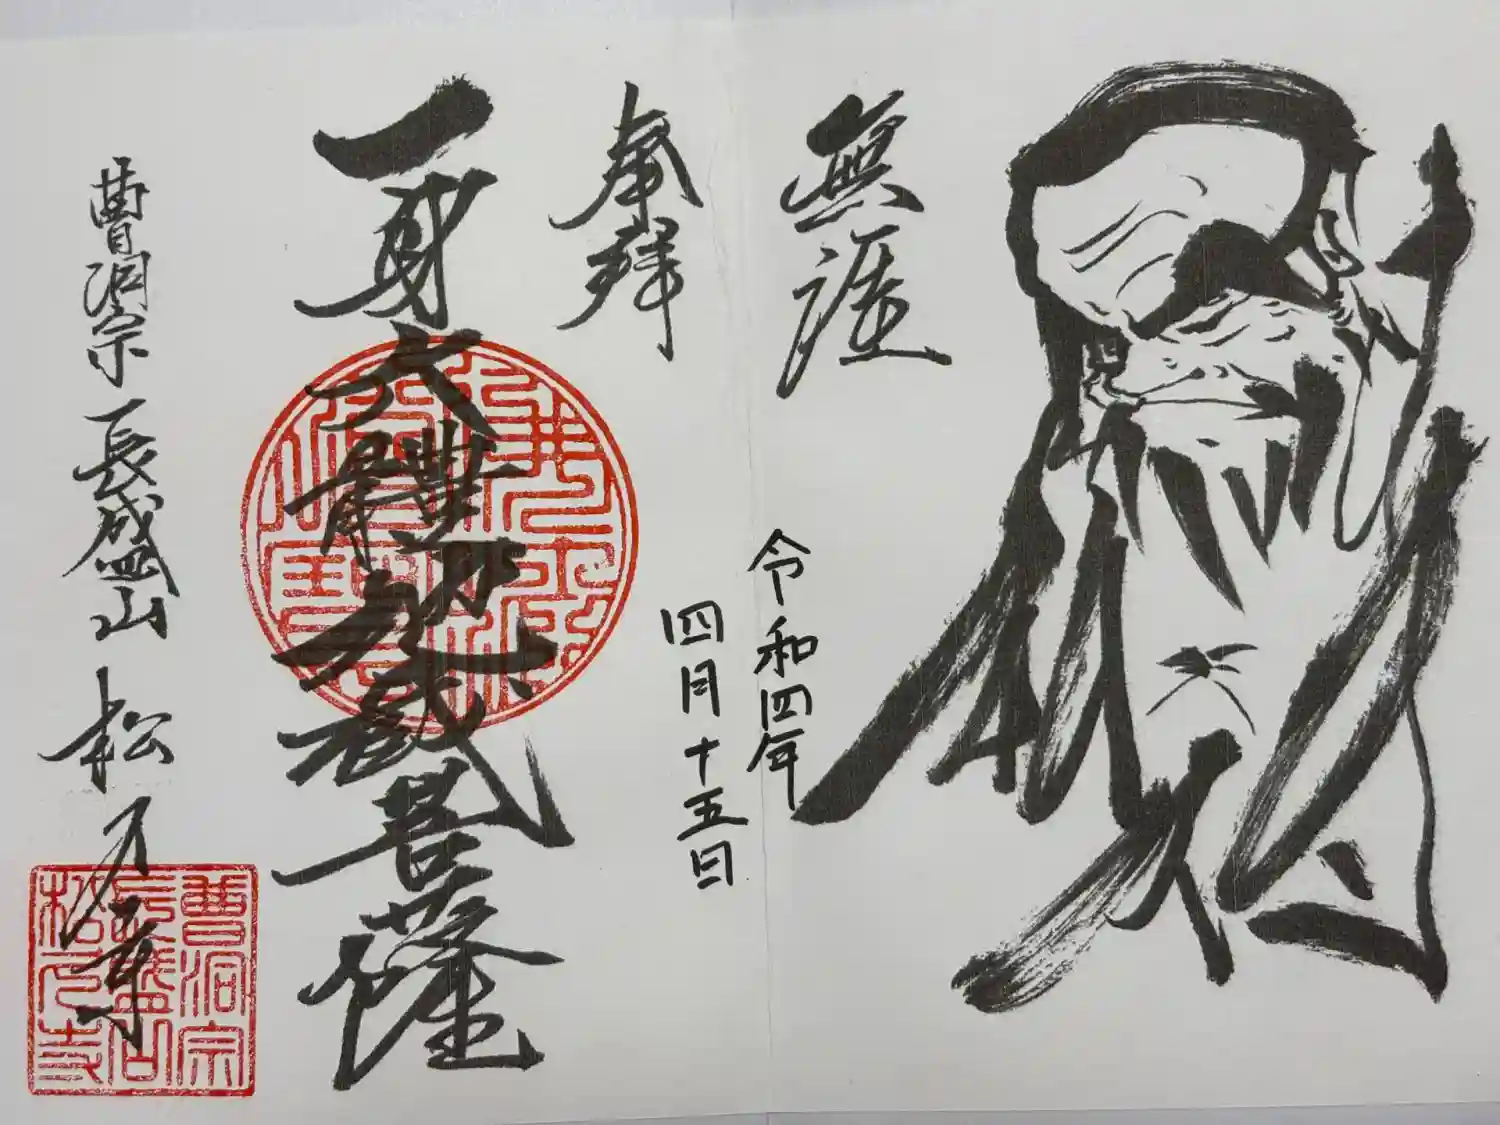 無涯
奉拝
令和四年
四月十五日
一身六體地蔵菩薩
曹洞宗 長盛山 松万寺
曹洞宗
長盛山
松万寺